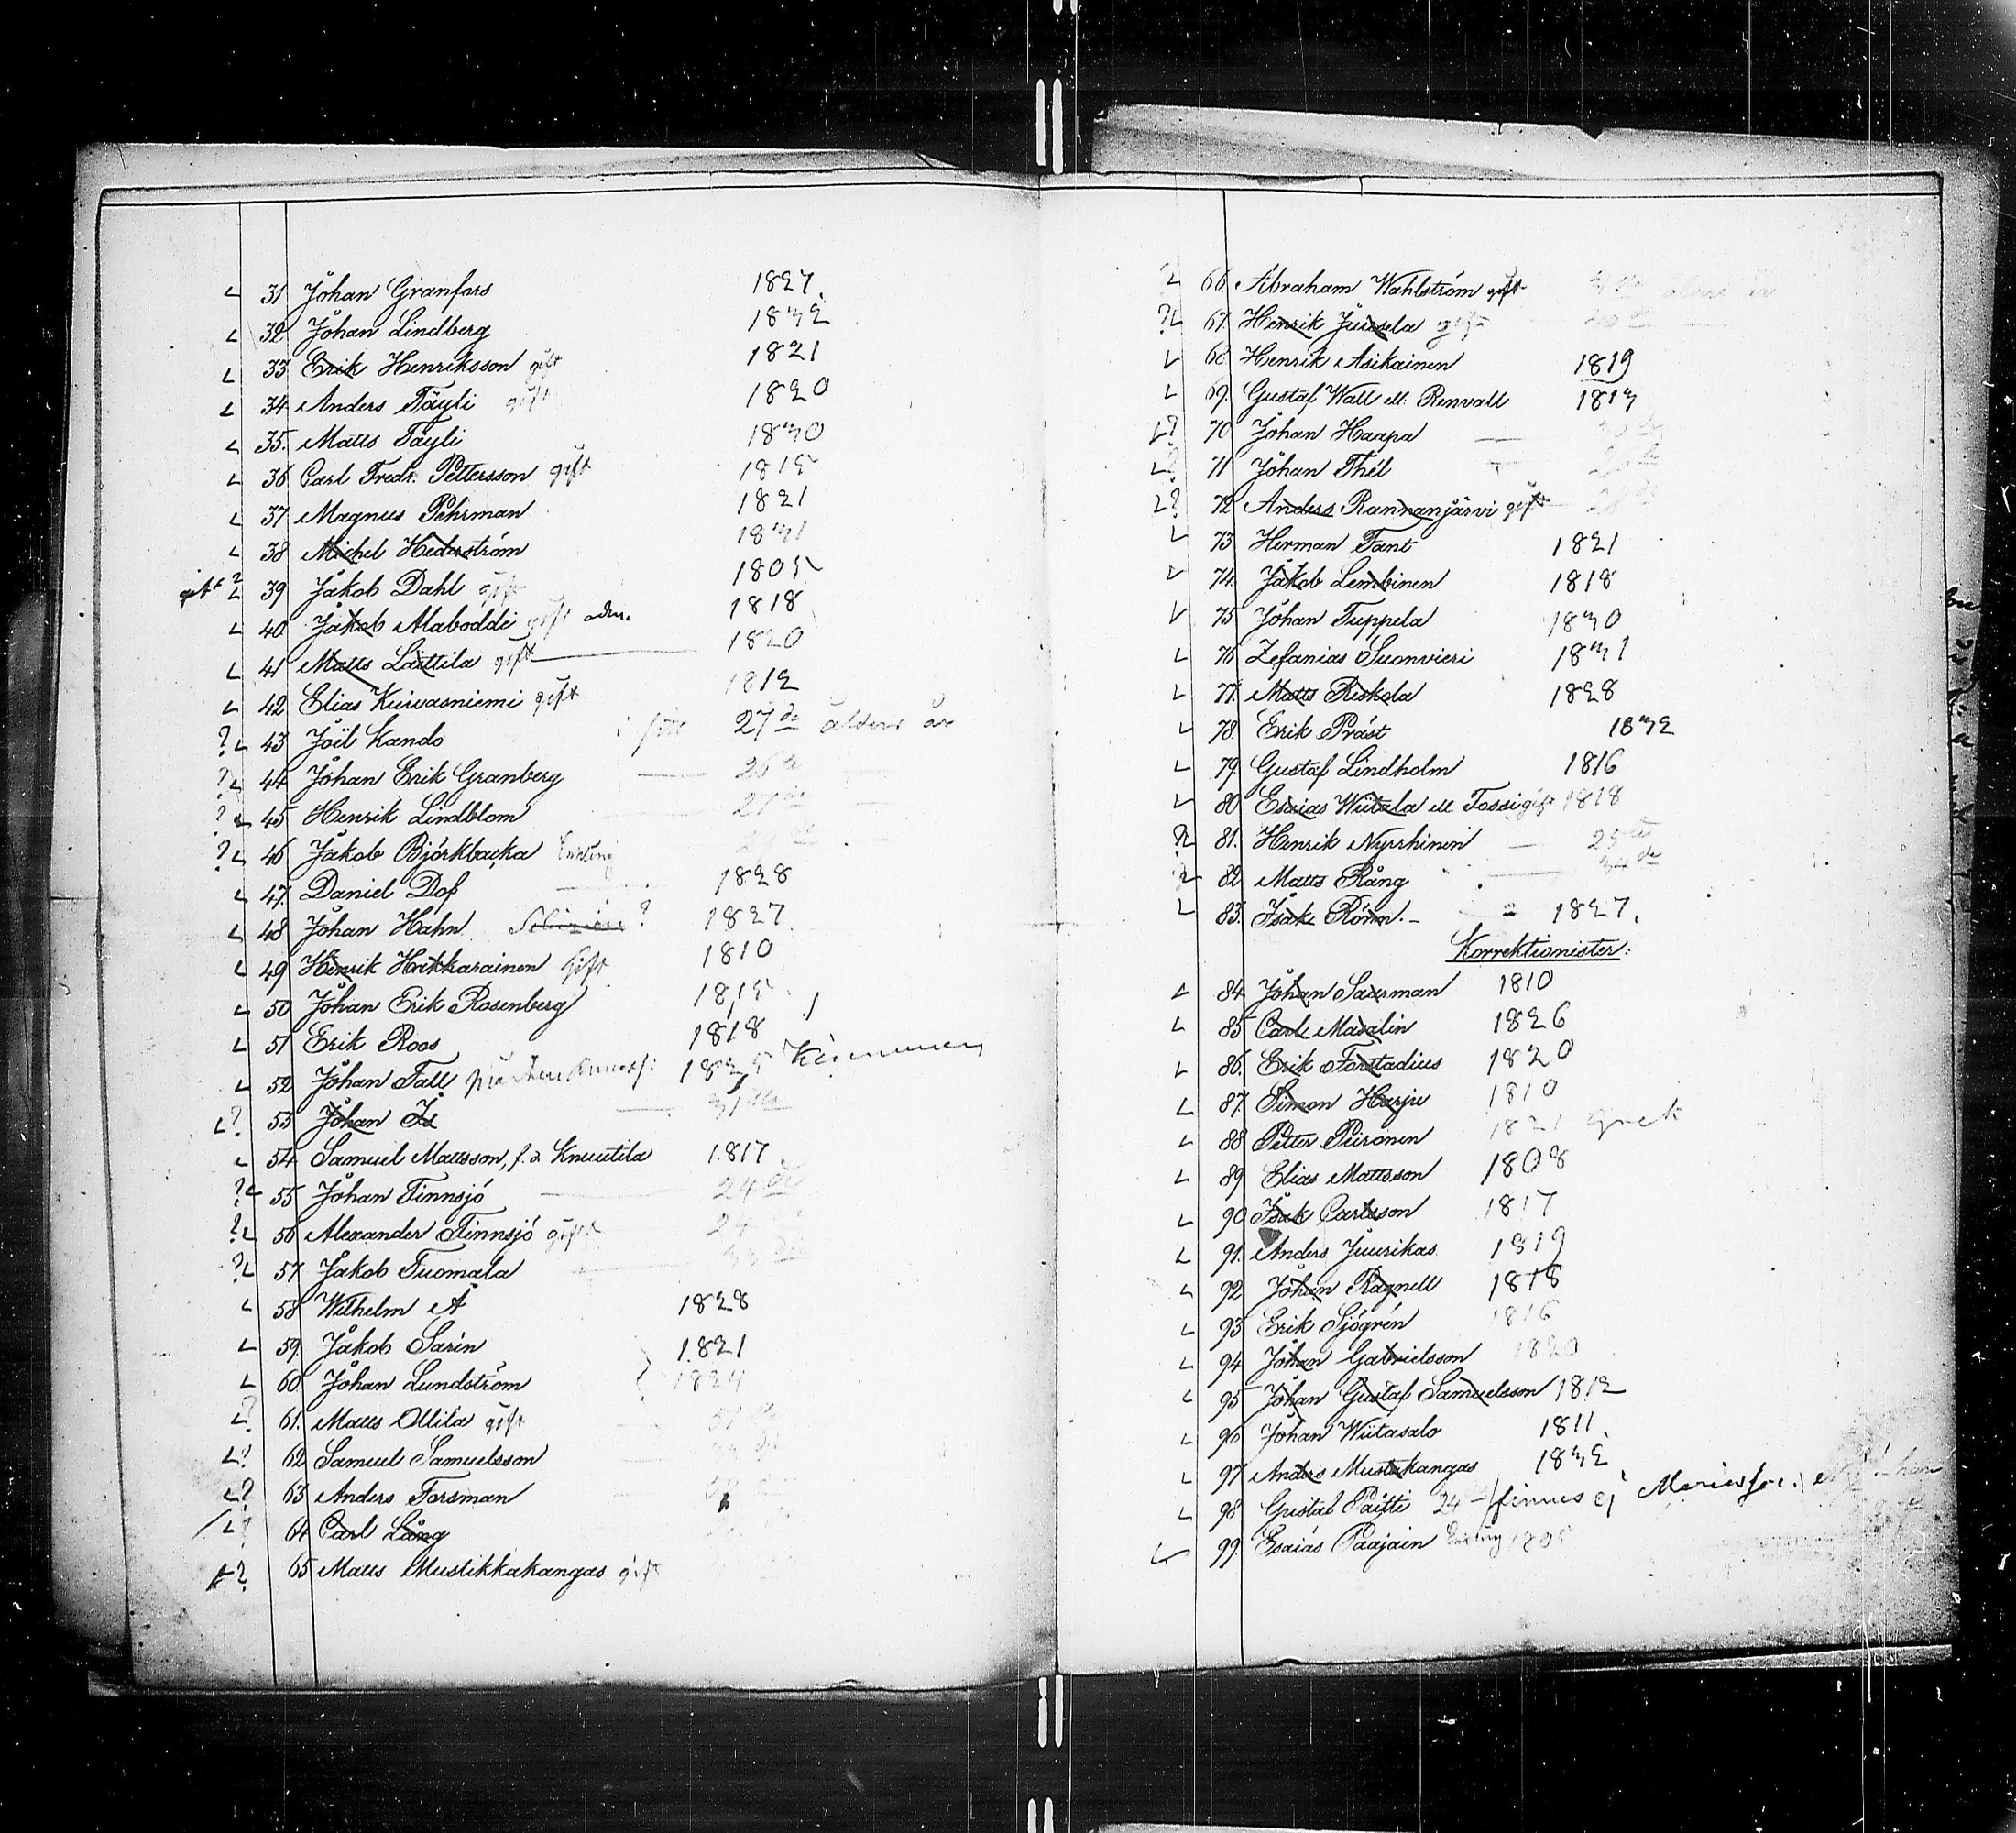 31 Johan Granfors 1827.
32 Johan Lindberg 1832
33 Erik Henriksson gift 1821
34 Anders Täyli gift 1820
35. Matts Täyli 1830
36 Carl Fredr. Pettersson gift 1815
37 Magnus Pehrman 1821
38 Michel Hederström 1831
gift ? 39 Jakob Dahl gift 1805
40 Jakob Alaboddi gift 1818
41 Matts Lättila gift 1820
42 Elias Kuivasniemi gift 1812
? 43 Joël Kando 27de ålders år
? 44 Johan Erik Granberg 26te
? 45 Henrik Lindblom 27de
? 46 Jakob Björkbacka Enkling
47. Daniel Dof 1828
48 Johan Hahn ? 1827
49 Henrik Hakkarainen Gift 1810
50 Johan Erik Rosenberg 1815
51 Erik Roos 1818
52 Johan Tall
? 53 Johan Is 31sta
54 Samuel Mattsson, f. d. Knuutila 1817
? 55 Johan Finnsjö 24de
? 56 Alexander Finnsjö gift 24
? 57 Jakob Tuomala
58 Wilhelm A 1828
59. Jakob Sarin 1821
60 Johan Lundström 1824
? 61. Matts Ollila gift
? 62 Samuel Samuelsson
? 63 Anders Forsman
? 64 Carl Lång
? 65 Matts Mustikkakangas gift
66. Abraham Wahlström gift
? 67. Henrik Juusela gift
68 Henrik Asikainen 1819
69. Gustaf Wall ell. Renvall 1813
? 70 Johan Haapa
? 71 Johan Thél
? 72 Anders Rannanjärvi gift 28de
73 Herman Fant 1821
74. Jakob Lembinen 1818
75 Johan Tuppela 1830
76 Zefanias Suonvieri 1831
77. Matts Riskola 1828
78. Erik Präst 1832
79. Gustaf Lindholm 1816
80 Esaias Wiitala ell. Tossi gift 1818
? 81. Henrik Nyrhinen 25te
82 Matts Rång 34de
83. Isak Rönn. 1827.
Korrektionister:
84 Johan Saurman 1810
85 Carl Masalin 1826
86. Erik Forstadius 1820
87. Simon Harju 1810
88 Petter Piironen 1821
89 Elias Mattsson 1808
90 Isak Carlsson 1817
91. Anders Juurikas 1819
92 Johan Ragnell 1818
93 Erik Sjögrén 1816
94 Johan Gabrielsson 1820
95 Johan Gustaf Samuelsson 1812
96 Johan Wiitasalo 1811.
97 Anders Mustakangas 1832
98 Gustaf Päitti 24 finnes ej
99. Esaias Paajain Enkling 1805